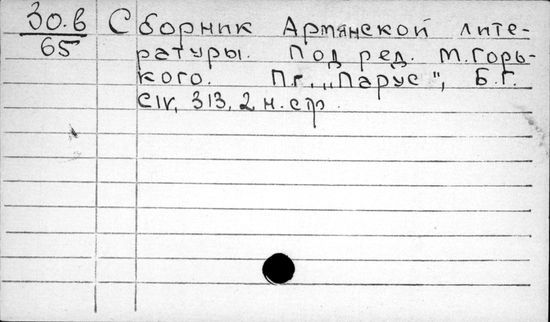 30.в Сборник Армянской лите-
65 ратуры. Под ред. М. Горь-
кого. П.г., „Парус", Б.Г.
CIV, 313, 2 н. стр.